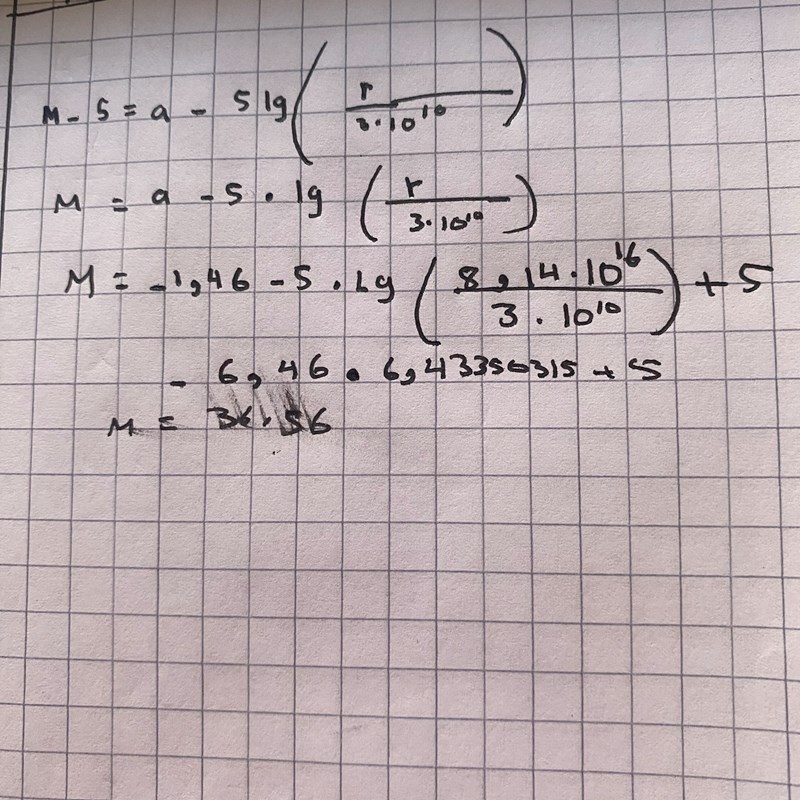 M - 5 = a - 5 lg( r / 3·10¹⁰ )
M = a - 5 · lg ( r / 3·10¹⁰ )
M = -1,46 - 5 · Lg ( 8,14·10¹⁶ / 3 · 10¹⁰ ) + 5
- 6,46 · 6,43356315 + 5
M = 36.56